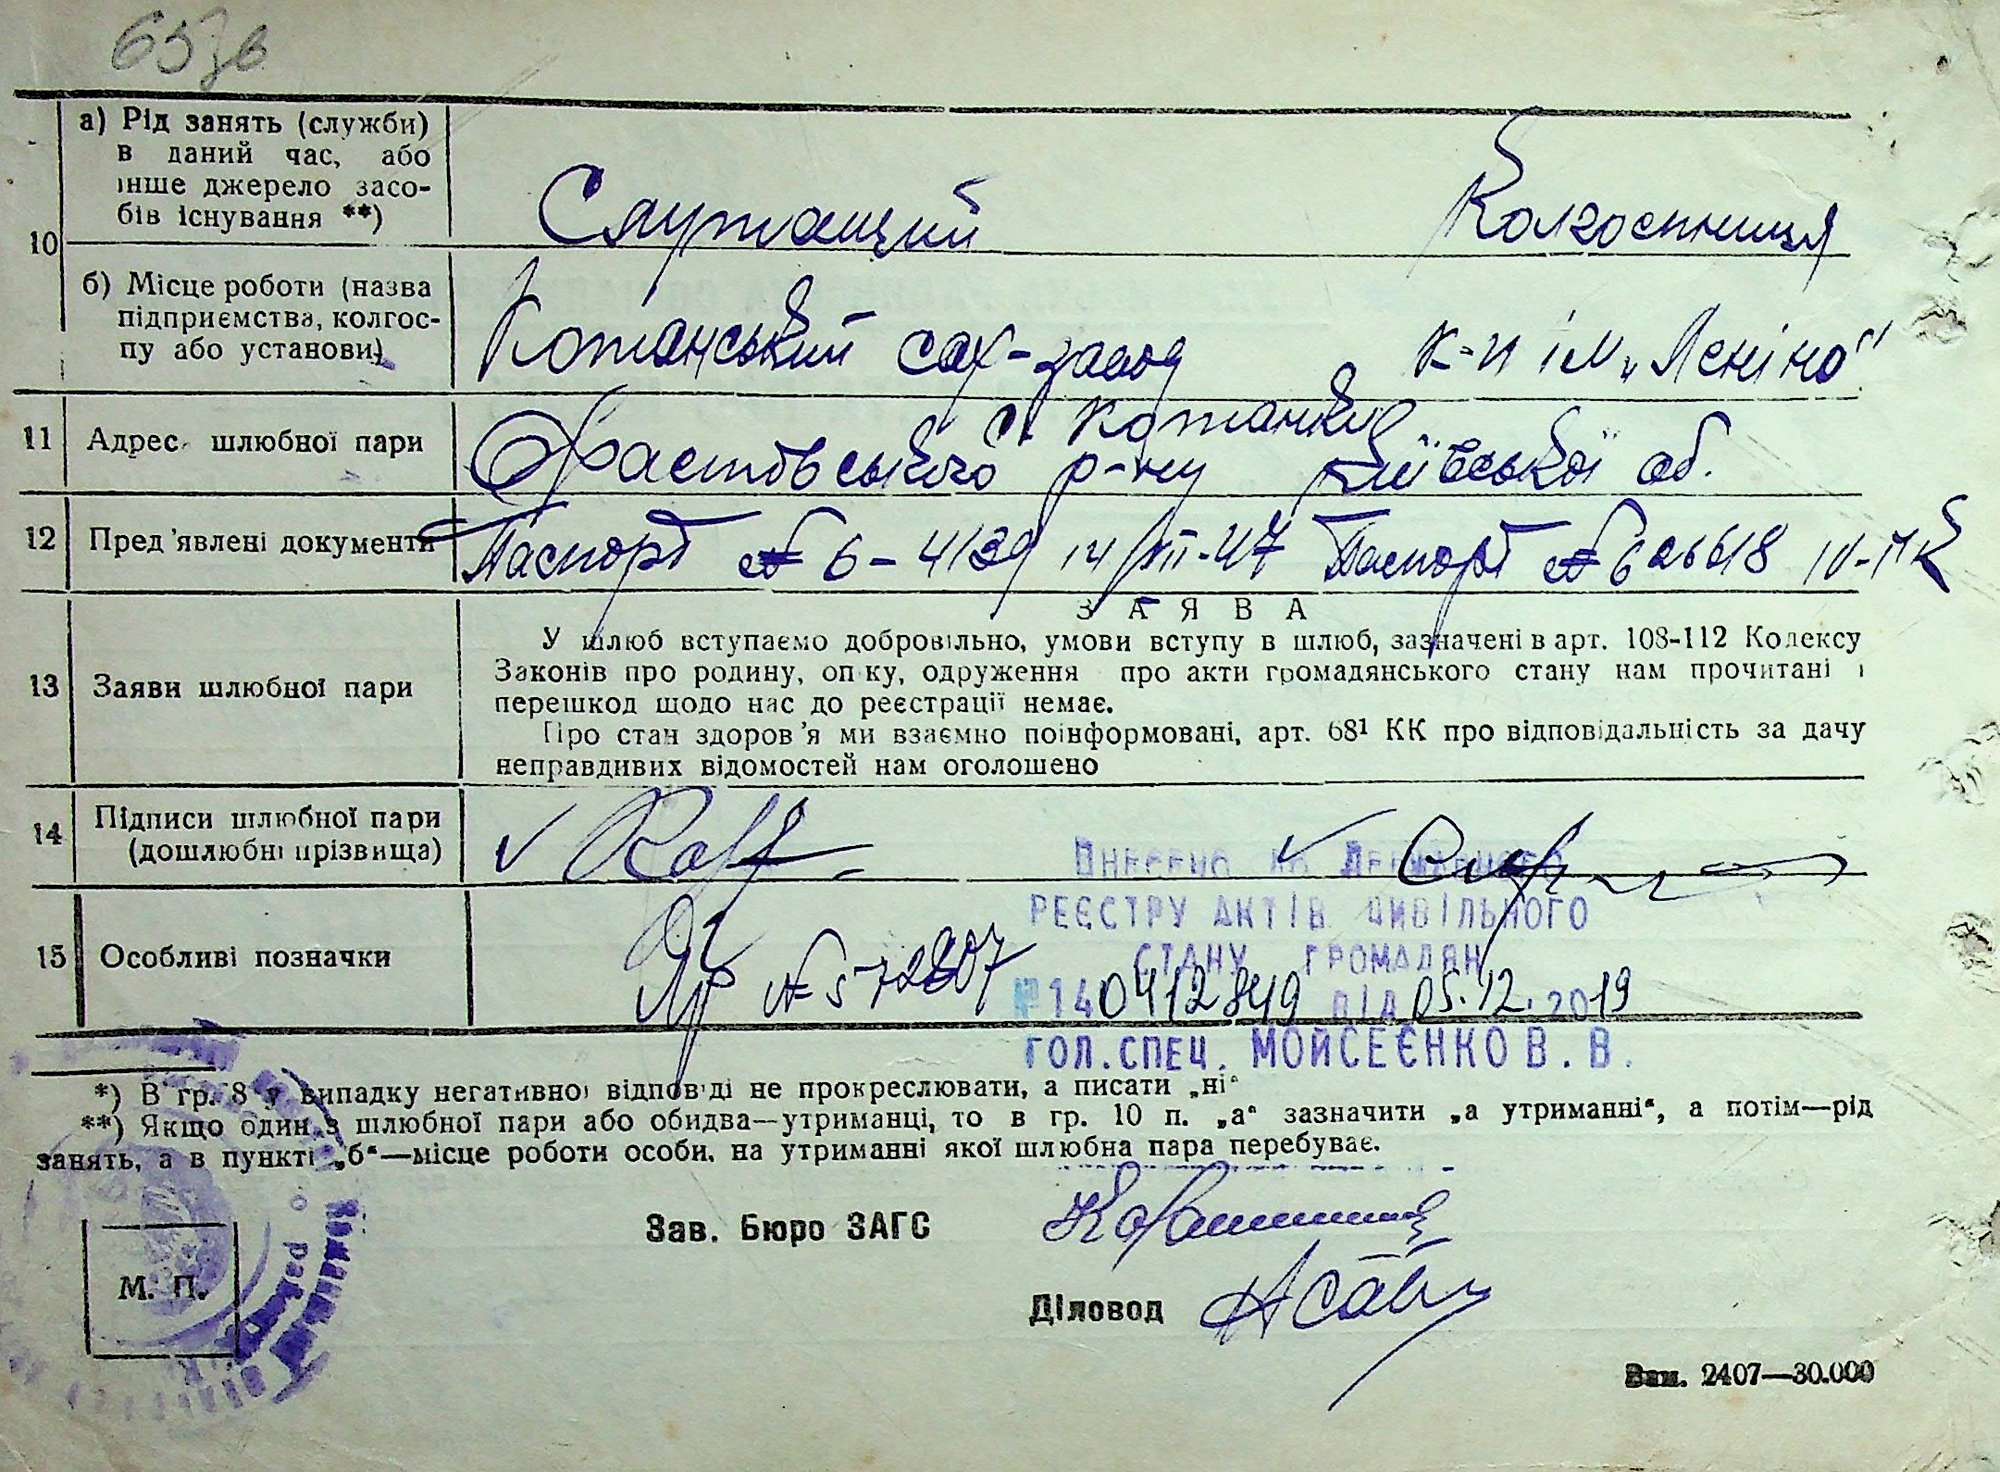 657в
10
а) Рід занять (служби)
в даний час, або
інше джерело засо-
бів існування **)
Служащий
Колгоспниця
б) Місце роботи (назва
підприємства, колгос-
пу або установи)
Кожанський сах-завод
к-п ім „Леніна"
11
Адрес шлюбної пари
с. Кожанки
Фастовського р-ну Київської об.
12
Пред'явлені документи
Паспорт № 6-4139 14/VIII-47
Паспорт №
13
Заяви шлюбної пари
ЗАЯВА
У шлюб вступаємо добровільно, умови вступу в шлюб, зазначені в арт. 108-112 Кодексу
Законів про родину, опіку, одруження про акти громадянського стану нам прочитані і
перешкод щодо нас до реєстрації немає.
Про стан здоров'я ми взаємно поінформовані, арт. 68¹ КК про відповідальність за дачу
неправдивих відомостей нам оголошено
14
Підписи шлюбної пари
(дошлюбні прізвища)
15
Особливі позначки
№ 572807
Внесено до Державного
реєстру актів цивільного
стану громадян
№ 140412849 від 05.12.2019
гол.спец. Мойсеєнко В. В.
*) В гр. 8 у випадку негативної відповіді не прокреслювати, а писати „ні"
**) Якщо один з шлюбної пари або обидва—утриманці, то в гр. 10 п. „а" зазначити „а утриманні", а потім—рід
занять, а в пункті „б"—місце роботи особи, на утриманні якої шлюбна пара перебуває.
Зав. Бюро ЗАГС
М. П.
Діловод
Зам. 2407—30.000